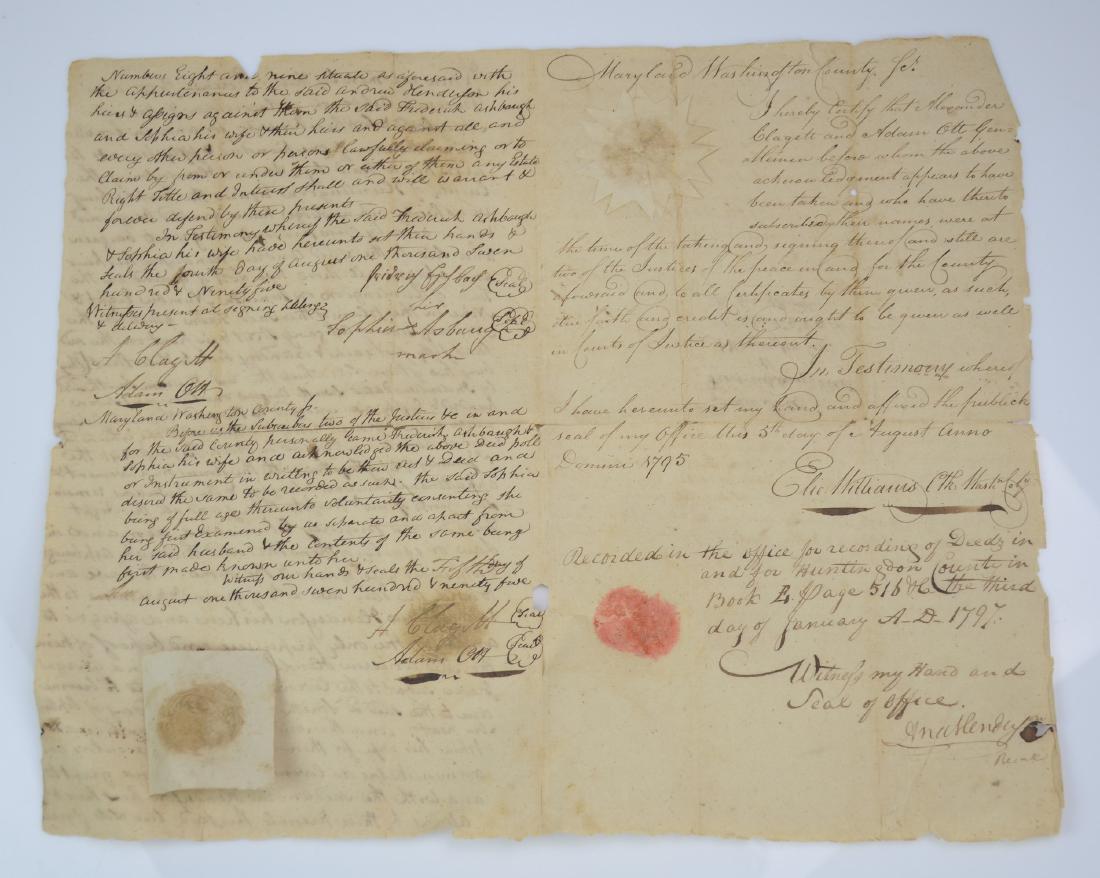 Numbers Eight and nine situate as aforesaid with
the appurtenances to the said andrew Henderson his
heirs & assigns against them the said Frederick Ashbaugh
and Sophia his wife & their heirs and against all and
every other person or persons Lawfully claiming or to
Claim by from or under them or either of them any Estate
Right Title and Interest shall and will warrant &
forever defend by these presents
In Testimony whereof the said Frederick Ashbaugh
& Sophia his wife have hereunto set their hands &
Seals the fourth day of august one thousand Seven
hundred & Ninety five
Seal
Witnesses present at signing Sealing
& delivery —
her
Sophia + Asbaug Seal
mark
A Clagett
Adam Ott
Maryland Washington County Sc.
Before us the Subscriber two of the Justices &c in and
for the said County, personally Came Frederick Ashbaugh &
Sophia his wife and acknowledged the above Deed poll
or Instrument in writing to be their act & Deed and
desired the same to be recorded as such. the said Sophia
being of full age thereunto voluntarily consenting she
being first Examined by us seperate and apart from
her said husband & the contents of the same being
first made known unto her
Witness our hands & seals the Fifth day of
august one thousand seven hundred & ninety five
A Clagett Seal
Adam Ott Seal
Maryland Washington County, Sc.
I hereby Certify that Alexander
Clagett and Adam Ott Gen-
tlemen before whom the above
acknowledgment appears to have
been taken and who have thereto
subscribed their names were at
the time of the taking and signing thereof and still are
two of the Justices of the peace in and for the County
aforesaid and to all Certificates by them given, as such,
due faith and credit is and ought to be given as well
in Courts of Justice as thereout.
In Testimony whereof
I have hereunto set my hand and affixed the publick
seal of my Office this 5th day of August Anno
Domini 1795
Elie Williams Clk Wash. Cty
Recorded in the office for recording of Deeds in
and for Huntingdon County in
Book E. page 518 &c the third
day of January A-D- 1797.
Witness my Hand and
Seal of office.